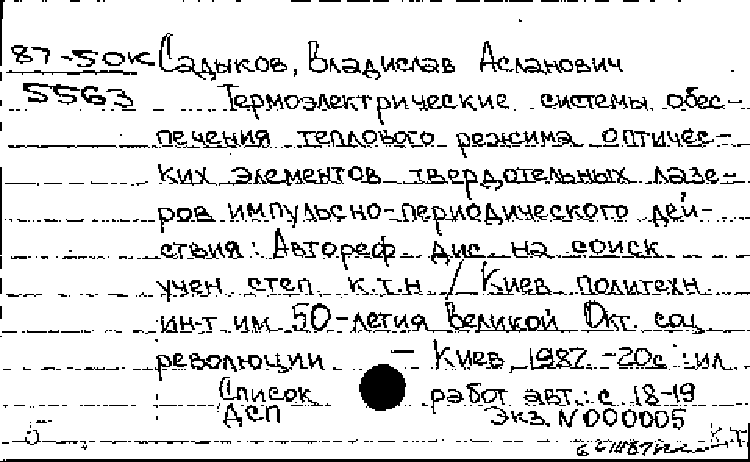 87-50К Садыков, Владислав Асланович
5563 Термоэлектрические системы обес-
печения теплового режима оптичес-
ких элементов твердотельных лазе-
ров импульсно-периодического дей-
ствия: Автореф. дис. на соиск
учен степ к.т.н / Киев политехн
ин-т им 50-летия Великой Окт. соц
революции — Киев, 1987. -20с :ил
Список работ авт.: с 18-19
ДСП Экз. N 000005
5 К.Т